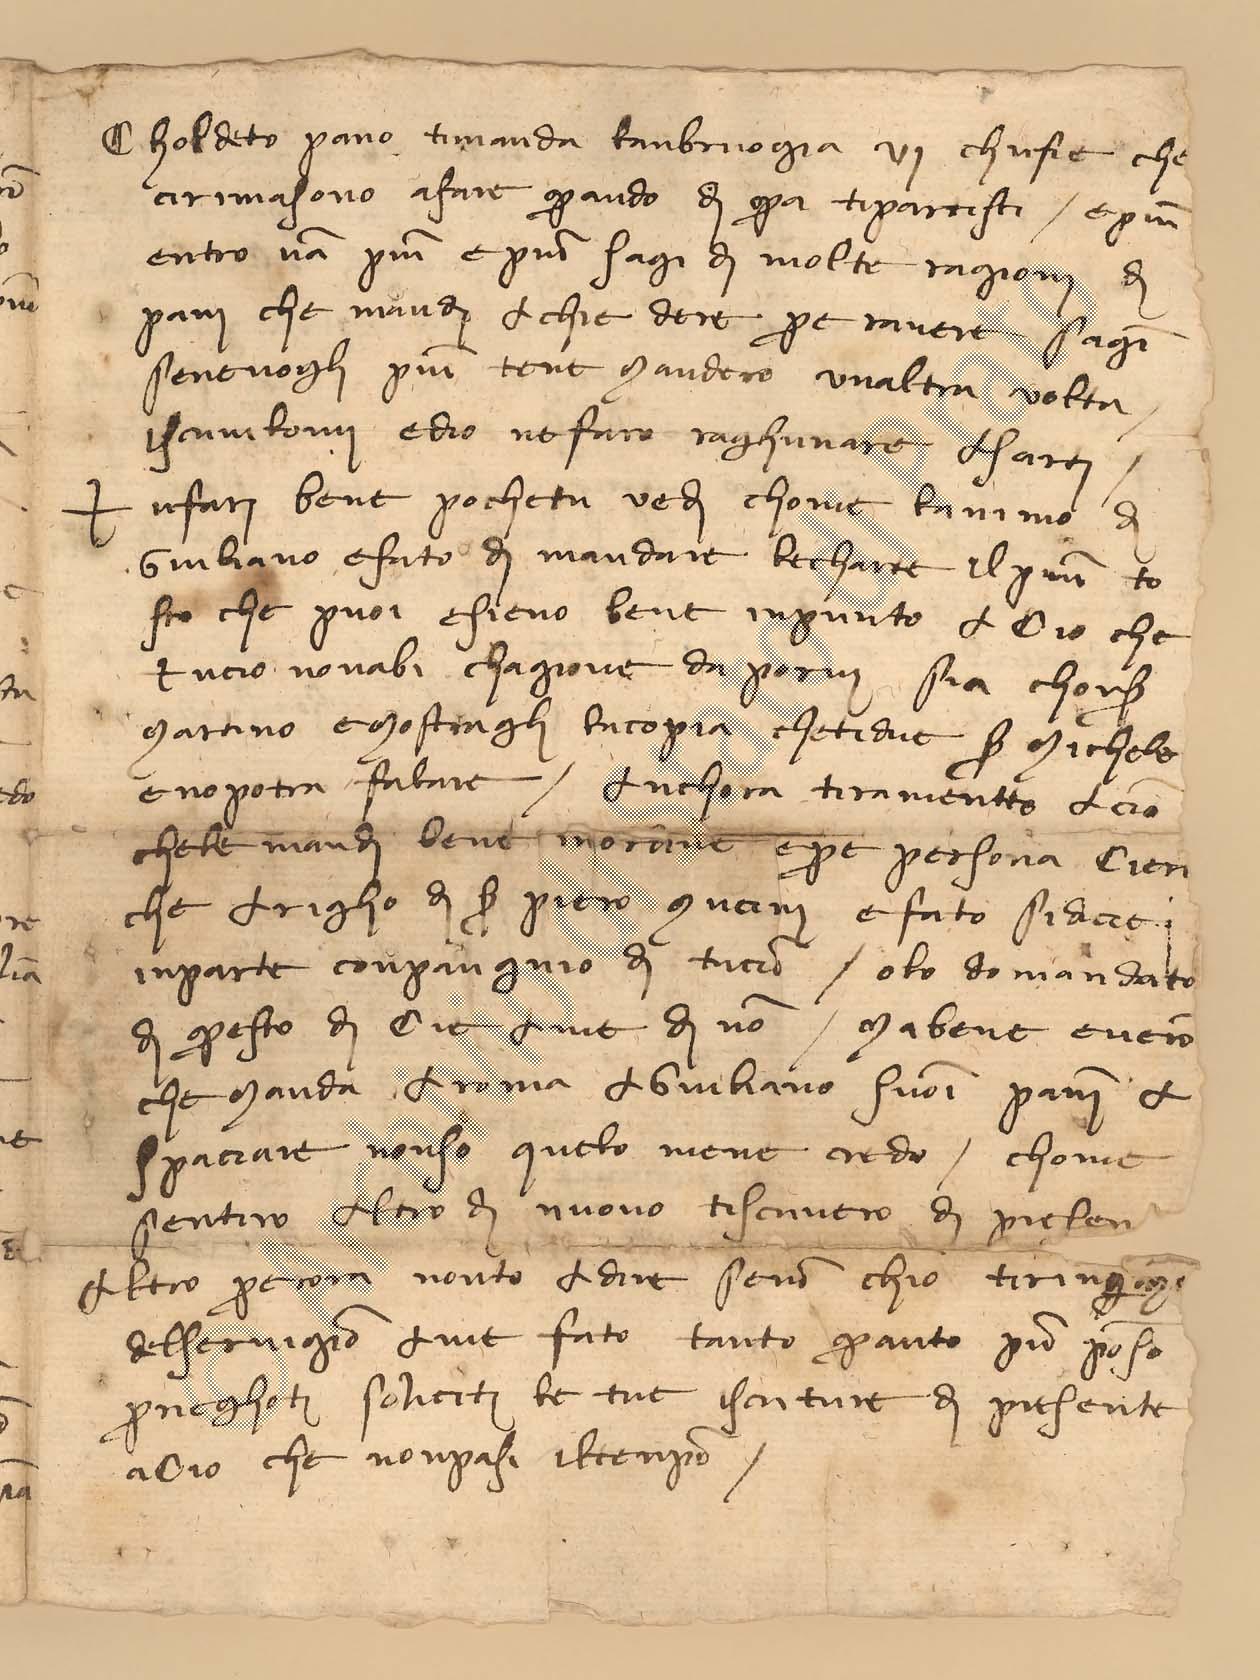 Choldeto pano timanda lanbruogia vj chufie che
cirimasono afare quando dj qua tipartisti / epiu
entro van piu epiu sagi dj molte ragionj dj
pani che mandj achiedere per avere sagi
senevoglj piu tene mandero unaltra volta /
iscrivilomj edio nefaro raghunare asarj /
ufarj bene pochetu vedj chome lanimo dj
Giuliano efato dj mandare lecharte il piu to
sto che puoi esieno bene inpunto aCio che
tucio nonabi chagione da porvj sia chonser
martino emostraglj lacopia chetidiie ser michele
enopotra falare / anchora tiramentto acio
chele mandj bene inordine eper persona Cier
che arigho dj ser piero mucinj efato sidicie
inparte conpangnio dj tucio / olo domandato
dj questo dj Cie ame dj no / mabene evero
che manda aroma aGiuliano suoi panj a
spacciare nonso quelo mene credo / chome
sentiro altro dj nuovo tiscrivero dj presen
altro per ora nonto adire seno chio tiringrazi
delservigio ame fato tanto quanto piu poso
prieghoti solicitj le tue iscriture dj presente
aCio che nonpasi iltenpo /
© Archivio di Stato di Prato